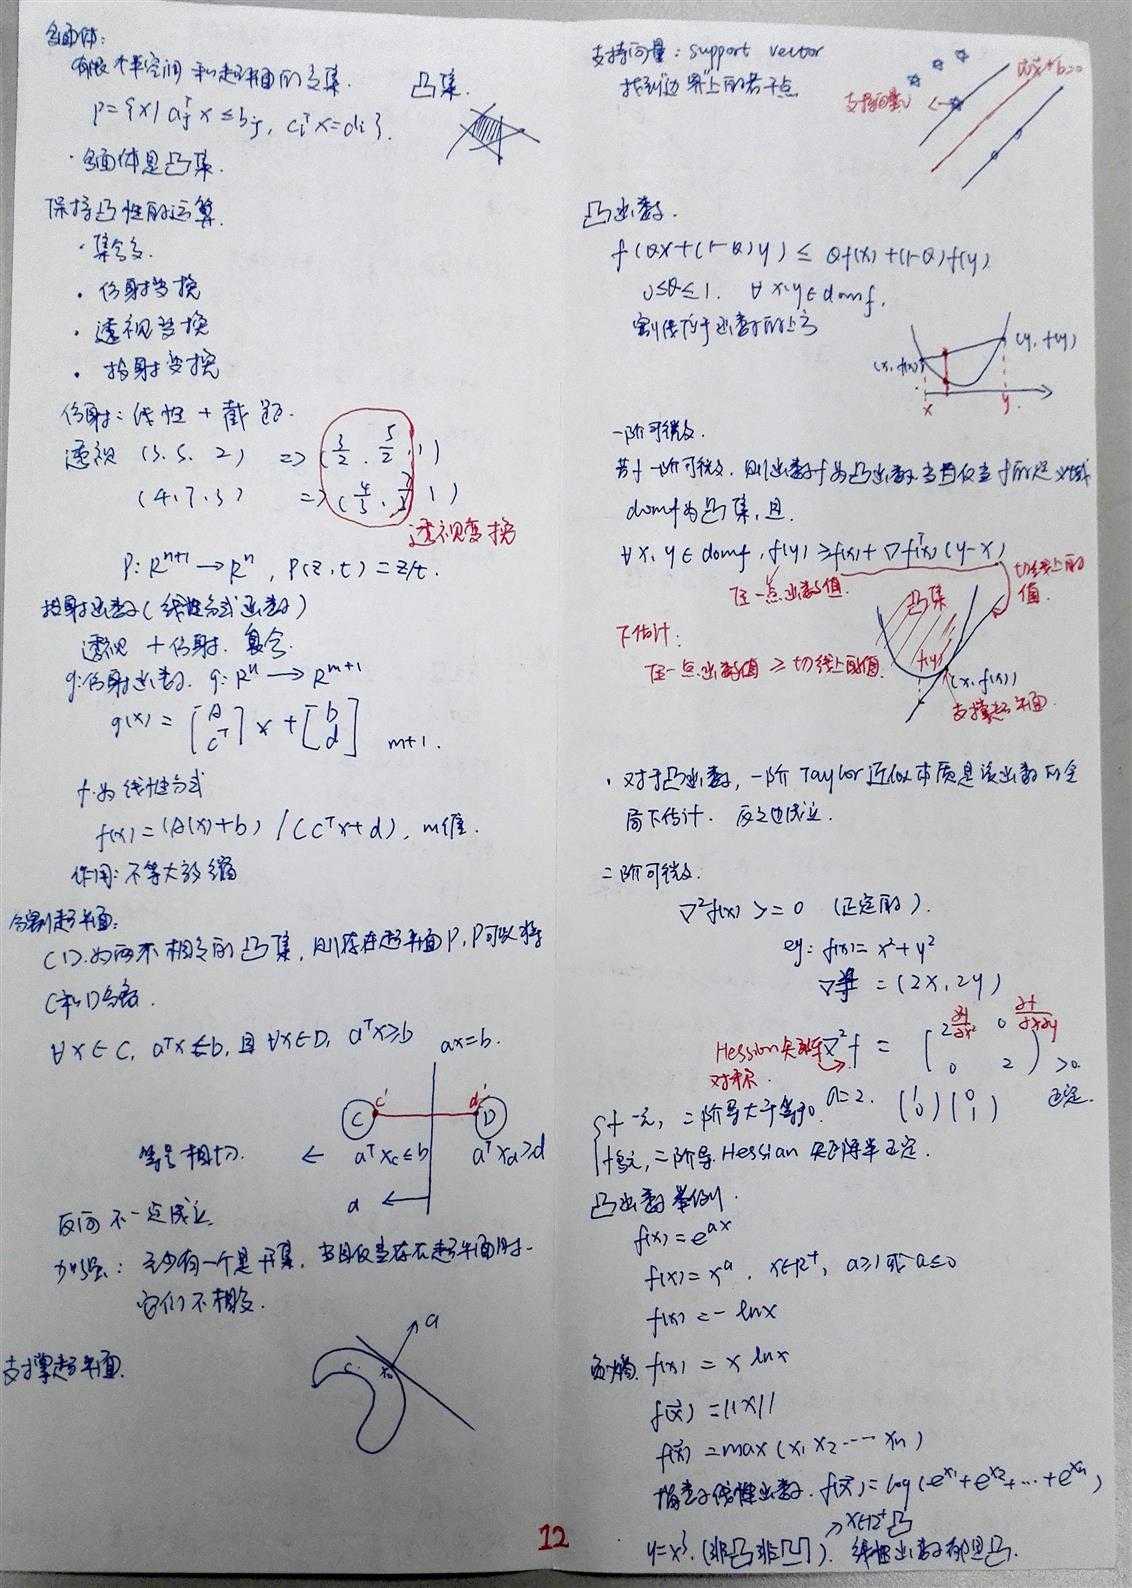 多面体:
有限个半空间和超平面的交集.
P={x| aⱼᵀx≤bⱼ, cᵢᵀx=dᵢ}.
凸集.
·多面体是凸集.
保持凸性的运算.
·集合交.
·仿射变换
·透视变换
·投射变换
仿射:线性+截距.
透视 (3.5.2) => (3/2, 5/2, 1)
(4.7.3) => (4/3, 7/3, 1)
透视变换
P: Rⁿ⁺¹→Rⁿ, P(z,t)=z/t.
投射函数(线性分式函数)
透视+仿射.复合.
g:仿射函数. g: Rⁿ→Rᵐ⁺¹
g(x)=[A cᵀ]x+[b d] m+1.
f为线性分式
f(x)=(A(x)+b)/(cᵀx+d), m维.
作用:不等大放缩
分割超平面:
C D.为两不相交的凸集,则存在超平面P,P可以将
C和D分离.
∀x∈C, aᵀx≤b,且∀x∈D, aᵀx≥b
ax=b.
C c' d' D
等号相切. ← aᵀx_c≤b aᵀx_d≥d
a
反向不一定成立.
加强:至少有一个是开集,当且仅当存在超平面时-
它们不相交.
支撑超平面.
a
C. x₀
支持向量: support vector
找到边界上的若干点.
支持向量
wx+b=0
凸函数.
f(θx+(1-θ)y)≤θf(x)+(1-θ)f(y)
0≤θ≤1. ∀x,y∈domf.
割线位于函数的上方
(x,f(x)) (y,f(y))
x y
一阶可微.
若f一阶可微.则函数f为凸函数当且仅当f的定义域
domf为凸集,且.
∀x,y∈domf,f(y)≥f(x)+∇fᵀ(x)(y-x)
任一点函数值.
切线上的
值.
凸集
下估计:
任一点函数值≥切线上的值.
f(y)
(x,f(x))
支撑超平面.
·对于凸函数,一阶Taylor近似本质是该函数的全
局下估计.反之也成立.
二阶可微.
∇²f(x)>=0 (正定的).
eg: f(x)=x²+y²
=(2x,2y)
Hession矩阵
对称.
∇²f=(2 0 0 2)>0.
∂f/∂x² ∂f/∂x∂y
正定.
f一元,二阶导大于等于0. a=2. (1 0)(0 1)
f多元,二阶导Hessian矩阵半正定.
凸函数举例.
f(x)=eᵃˣ
f(x)=xᵃ. x∈R⁺, a≥1或a≤0
f(x)=-lnx
负熵. f(x)=x lnx
f(x⃗)=||x||
f(x⃗)=max(x₁ x₂ ⋯ xₙ)
指数线性函数. f(x⃗)=log(eˣ¹+eˣ²+⋯+eˣⁿ)
x∈R⁺凸
y=x³.(非凸非凹). 线性函数都是凸.
12